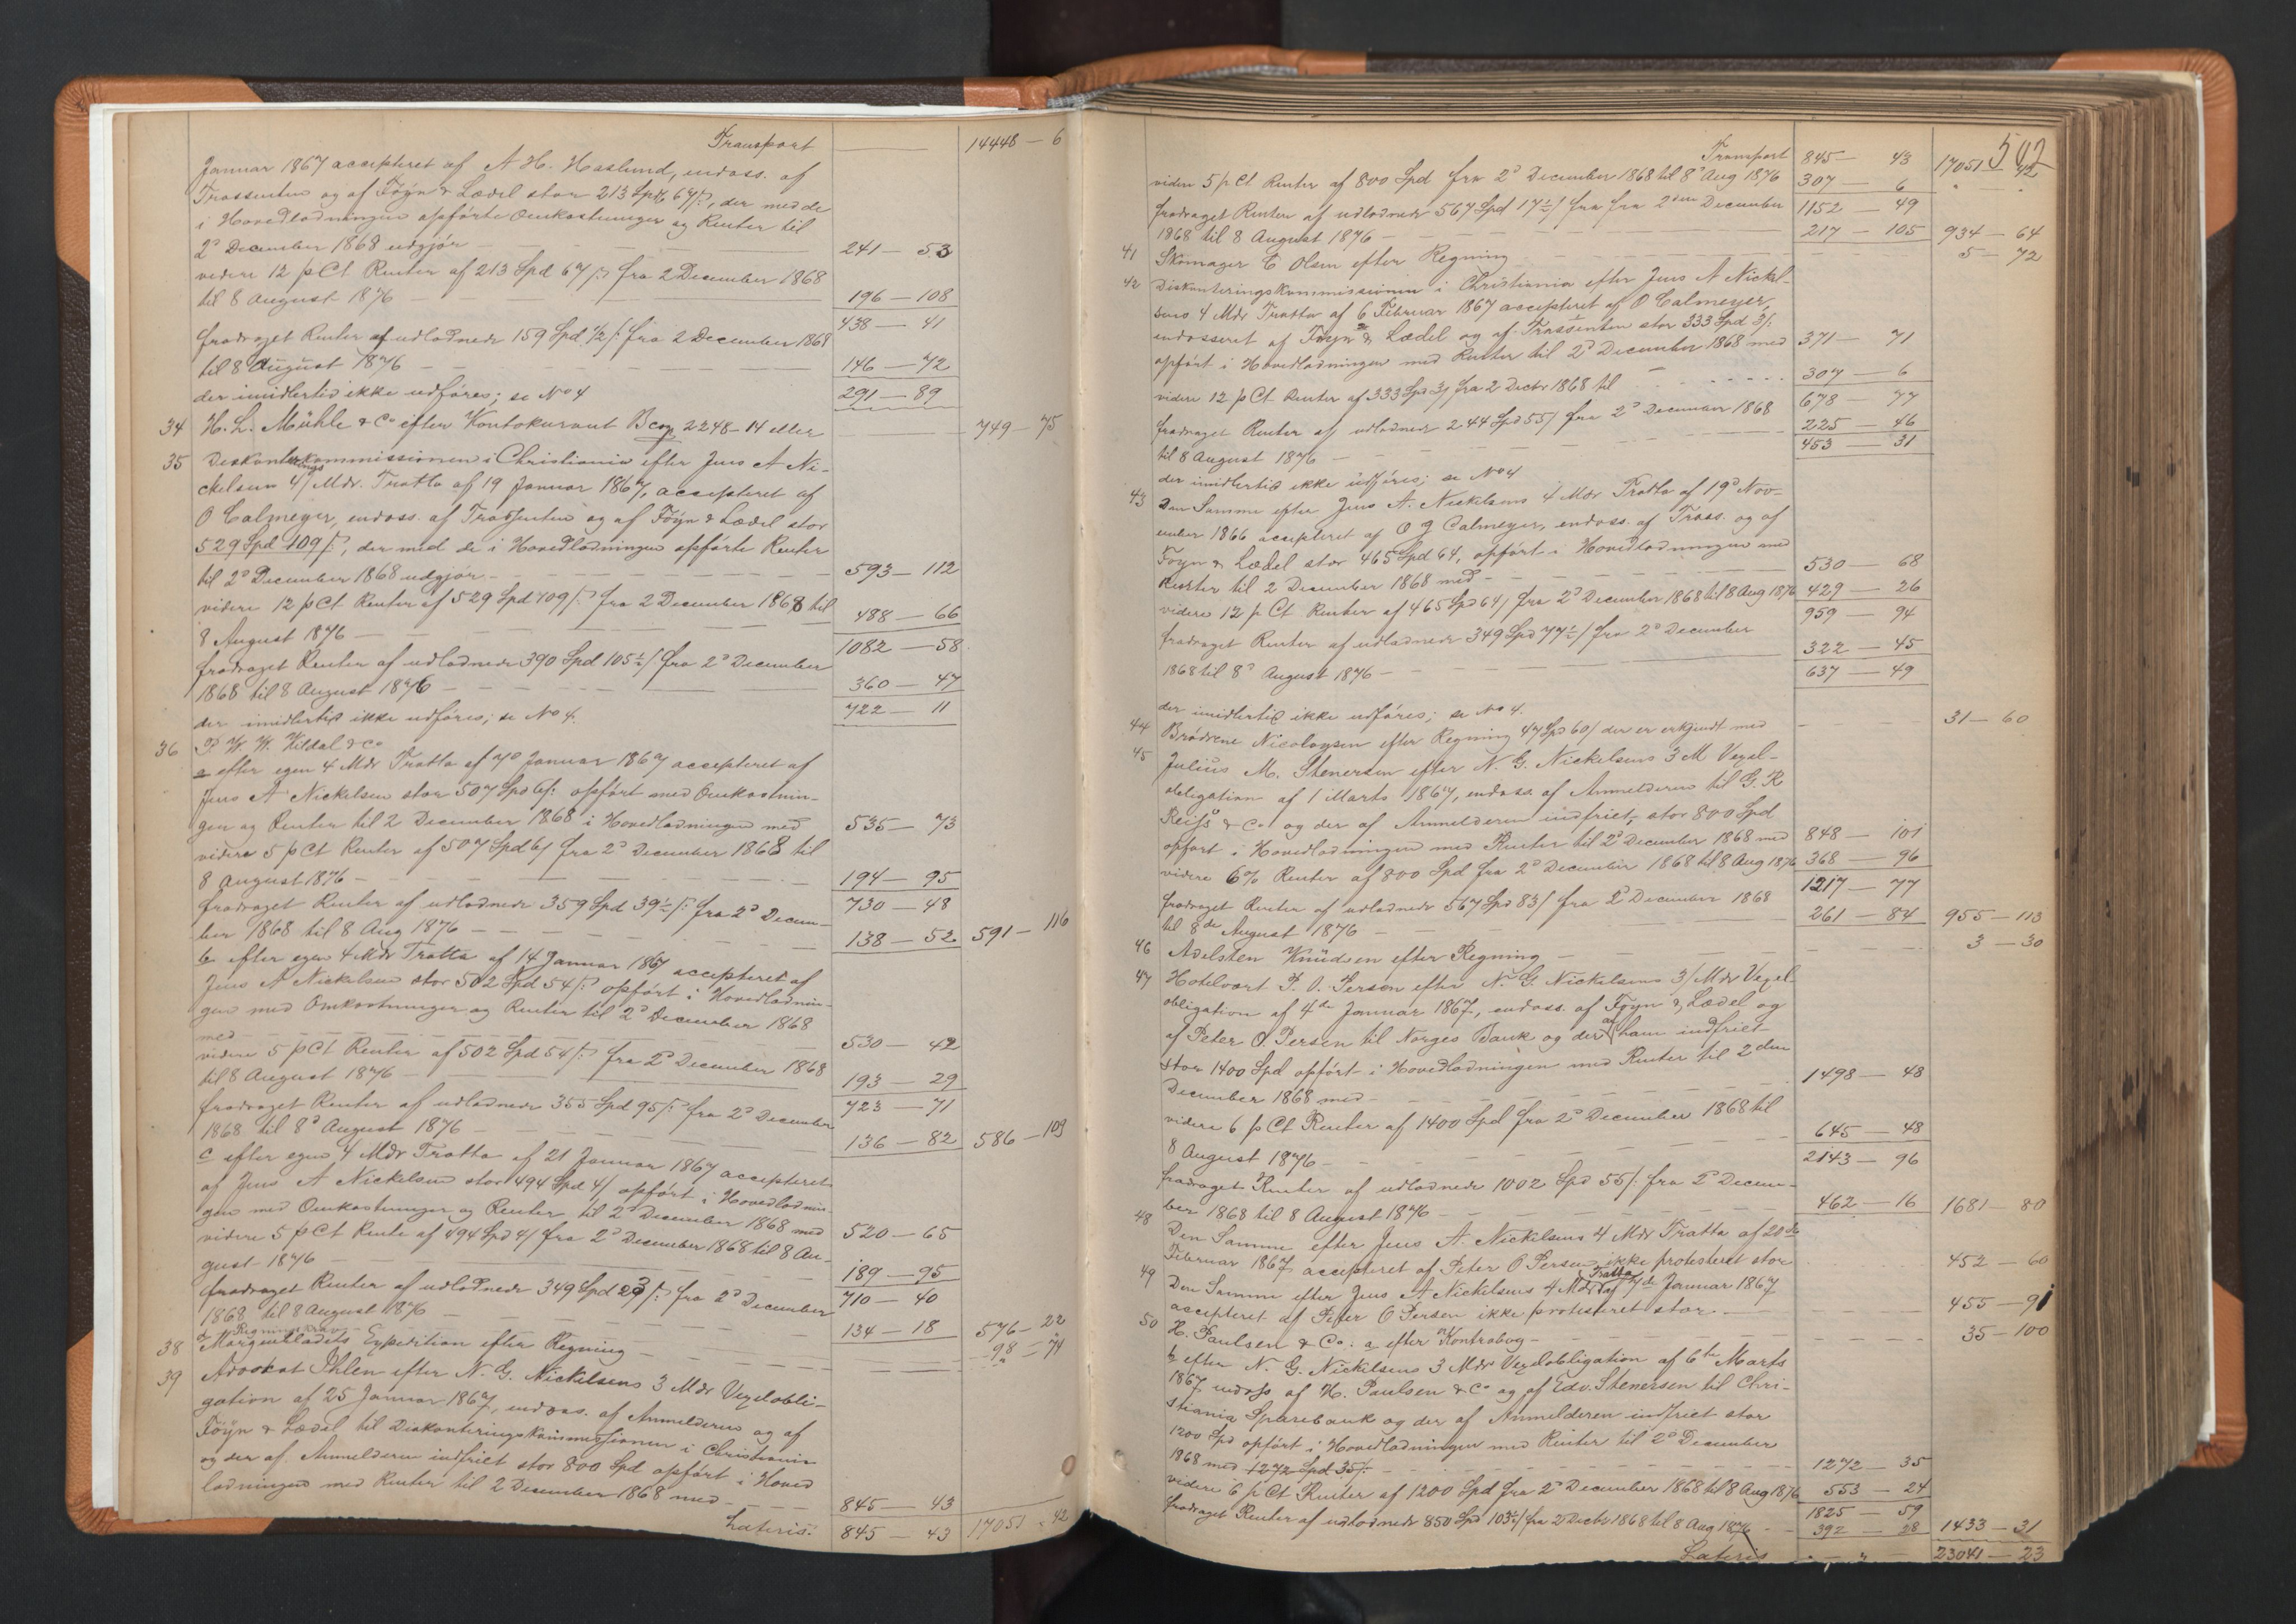 Transport — 14448 — 6
Januar 1867 accepteret af A H. Haslund, endoss. af
Trassenten og af Föyn & Lædel stor 213 Spd 67/:, der med de
i Hovedlodningen opförte Omkostninger og Renter til
2d December 1868 udgjör — 241 — 53
videre 12 p Ct Renter af 213 Spd 67/: fra 2 December 1868
til 8 August 1876 — 196 — 108
438 — 41
fradraget Renter af udlodnede 159 Spd 1/2/: fra 2 December 1868
til 8 August 1876 — 146 — 72
der imidlertid ikke udföres; se No 4 291 — 89
34 H. L. Mühle & Co efter Kontokurant Bco 2248-14 eller — 749 — 75
35 Diskonteringskommissionen i Christiania efter Jens A Ni-
ckelsens 4/Mdr. Tratta af 19 Januar 1867, accepteret af
O Calmeyer, endoss. af Trassenten og af Föyn & Lædel stor
529 Spd 109/:, der med de i Hovedlodningen opförte Renter
til 2d December 1868 udgjör — 593 — 112
videre 12 p Ct Renter af 529 Spd 109/: fra 2 December 1868 til
8 August 1876 — 488 — 66
1082 — 58
fradraget Renter af udlodnede 390 Spd 105½/: fra 2d December
1868 til 8 August 1876 — 360 — 47
der imidlertid ikke udföres; se No 4. 722 — 11
36 P. W. W. Kildal & Co
a efter egen 4 Mdr Tratta af 7d Januar 1867 accepteret af
Jens A Nickelsen stor 507 Spd 6/: opfört med Omkostnin-
gen og Renter til 2 December 1868 i Hovedlodningen med 535 — 73
videre 5 p Ct Renter af 507 Spd 6/ fra 2d December 1868 til
8 August 1876 — 194 — 95
730 — 48
fradraget Renter af udlodnede 359 Spd 39½/: fra 2d Decem-
ber 1868 til 8 Aug 1876 — 138 — 52 591 — 116
b efter egen 4 Mdr Tratta af 14 Januar 1867 accepteret af
Jens A Nickelsen stor 502 Spd 54/: opfört i Hovedlodnin-
gen med Omkostninger og Renter til 2d December 1868
med — 530 — 42
videre 5 p Ct Renter af 502 Spd 54/: fra 2d December 1868
til 8 August 1876 — 193 — 29
723 — 71
fradraget Renter af udlodnede 355 Spd 95/: fra 2d December
1868 til 8d August 1876 — 136 — 82 586 — 109
c efter egen 4 Mdr Tratta af 21 Januar 1867 accepteret
af Jens A Nickelsen stor 494 Spd 4/ opfört i Hovedlodnin-
gen med Omkostninger og Renter til 2d December 1868 med 520 — 65
videre 5 p Ct Rente af 494 Spd 4/ fra 2d December 1868 til 8 Au-
gust 1876 — 189 — 95
710 — 40
fradraget Renter af udlodnede 349 Spd 23/: fra 2d December
1868 til 8 August 1876 — 134 — 18 576 — 22
38 Morgenbladets Expedition efter Regning — 98 — 74
39 Advokat Ihlen efter N. G. Nickelsens 3 Mdr Vexelobli-
gation af 25 Januar 1867, endoss. af Anmelderen og af
Föyn & Lædel til Diskonteringskommissionen i Christiania
og der af Anmelderen indfriet stor 800 Spd opfört i Hoved
lodningen med Renter til 2 December 1868 med — 845 — 43
Lateris: 845 — 43 17051 - 42
502
Transport 845 — 43 17051 - 42
videre 5 p Ct Renter af 800 Spd fra 2d December 1868 til 8d Aug 1876 307 — 6
1152 — 49
fradraget Renter af udlodnede 567 Spd 17½/ fra fra 2den December
1868 til 8 August 1876 — 217 — 105 934 — 64
41 Skomager C Olsen efter Regning — 5 — 72
42 Diskonteringskommissionen i Christiania efter Jens A Nickel-
sens 4 Mdr Tratta af 6 Februar 1867 accepteret af O Calmeyer,
endosseret af Föyn & Lædel og af Trassenten stor 333 Spd 3/:
opfört i Hovedlodningen med Renter til 2d December 1868 med 371 — 71
videre 12 p Ct Renter af 333 Spd 3/ fra 2 Decbr 1868 til 307 — 6
678 — 77
fradraget Renter af udlodnede 244 Spd 55/ fra 2d December 1868
til 8 August 1876 — 225 — 46
453 — 31
der imidlertid ikke udföres; se No 4
43 Den Samme efter Jens A. Nickelsens 4 Mdr Tratta af 19d Nov-
ember 1866 accepteret af O J Calmeyer, endoss. af Trass. og af
Föyn & Lædel stor 465 Spd 64, opfört i Hovedlodningen med
Renter til 2 December 1868 med — 530 — 68
videre 12 p. Ct Renter af 465 Spd 64/ fra 2d December 1868 til 8 Aug 1876 429 — 26
959 — 94
fradraget Renter af udlodnede 349 Spd 77½/ fra 2d December
1868 til 8d August 1876 — 322 — 45
637 — 49
der imidlertid ikke udföres; se No 4.
44 Brödrene Nicolaysen efter Regning 47 Spd 60/ der er erkjendt med — 31 — 60
45 Julius M. Stenersen efter N. G. Nickelsens 3 M Vexel-
obligation af 1 Marts 1867, endoss af Anmelderen til G. R
Reiss & Co og der af Anmelderen indfriet, stor 800 Spd
opfört i Hovedlodningen med Renter til 2d December 1868 med 848 — 101
videre 6% Renter af 800 Spd fra 2d December 1868 til 8 Aug 1876 368 — 96
1217 — 77
fradraget Renter af udlodnede 567 Spd 83/ fra 2d December 1868
til 8de August 1876 — 261 — 84 955 — 113
46 Adelsten Knüdsen efter Regning — 3 — 30
47 Hotelvært P. O. Persen efter N. G. Nickelsens 3/Mdr Vexel-
obligation af 4de Januar 1867, endoss. af Föyn & Lædel og
af Peter O. Persen til Norges Bank og der af ham indfriet
stor 1400 Spd opfört i Hovedlodningen med Renter til 2den
December 1868 med — 1498 — 48
videre 6 p Ct Renter af 1400 Spd fra 2d December 1868 til
8 August 1876 — 645 — 48
2143 — 96
fradraget Renter af udlodnede 1002 Spd 55/: fra 2d Decem-
ber 1868 til 8 August 1876 — 462 — 16 1681 — 80
48 Den Samme efter Jens A. Nickelsens 4 Mdr Tratta af 20de
Februar 1867 accepteret af Peter O Persen ikke protesteret stor 452 — 60
49 Den Samme efter Jens A Nickelsens 4 Mdr Tratta af 7de Januar 1867
accepteret af Peter O Persen ikke protesteret stor — 455 — 91
50 H. Paulsen & Co: a efter Kontrabog — 35 — 100
b efter N. G. Nickelsens 3 Mdr Vexelobligation af 6te Marts
1867 endoss af H. Paulsen & Co og af Edv. Stenersen til Chri-
stiania Sparebank og der af Anmelderen indfriet stor
1200 Spd opfört i Hovedlodningen med Renter til 2d December
1868 med 1272 Spd 35/: — 1272 — 35
videre 6 p Ct Renter af 1200 Spd fra 2d December 1868 til 8 Aug 1876 553 — 24
1825 — 59
fradraget Renter af udlodnede 850 Spd 103½/ fra 2 Decbr 1868 til 8 Aug 1876 — 392 — 28 1433 — 31
Lateris — 23041 — 23